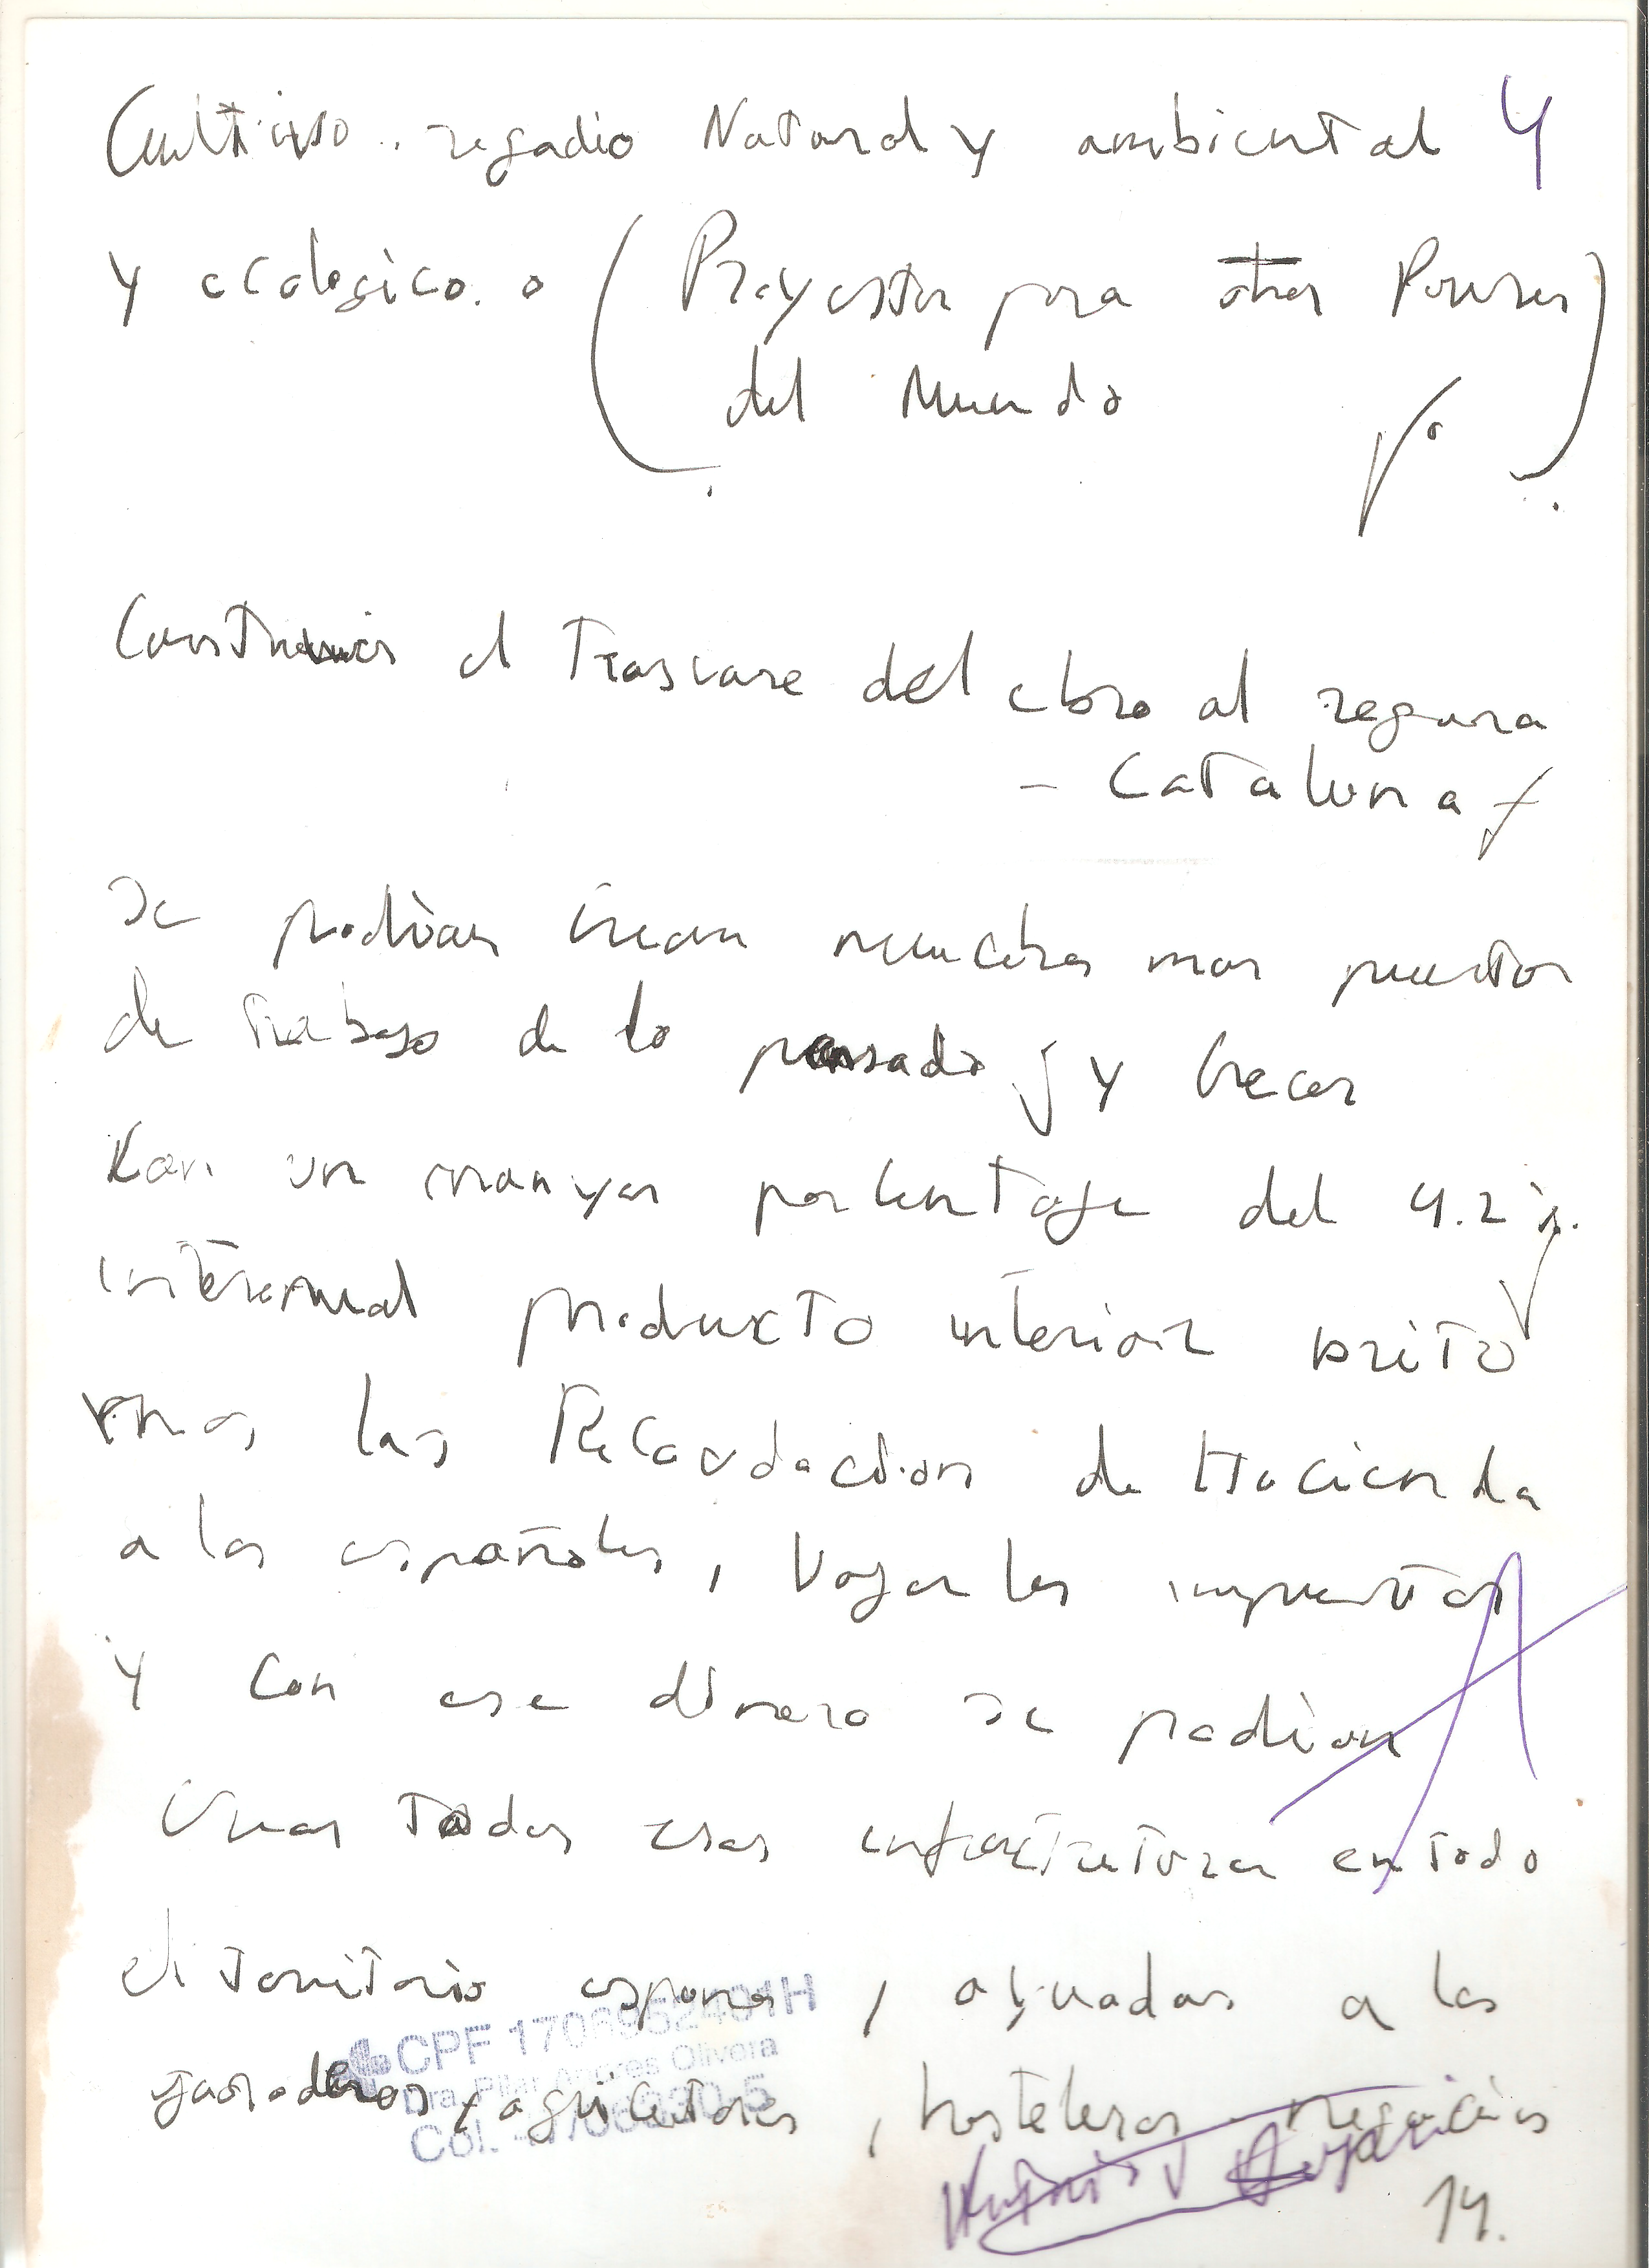 Cultivo.. regadio Natural y ambiental 4
y ecologico. o (Proyectos para otros Paises
del Mundo)
Construir el Trasvase del ebro al segura
- Cataluna
se podian crear muchos mas puestos
de trabajo de lo pensado y crecer
Kon un manyor porcentage del 4.2%.
interanual producto interior brito
mas las Recaudaction de Hacienda
a los españoles, bajarles impuestos
y con ese dinero se podian
crear todas esas infractruturas en todo
el territorio espana, ayuadas a los
ganaderos y agricultores, hosteleros negocios
CPF 1706952401H
Dra. Pilar Andres Olivera
Col.
14.